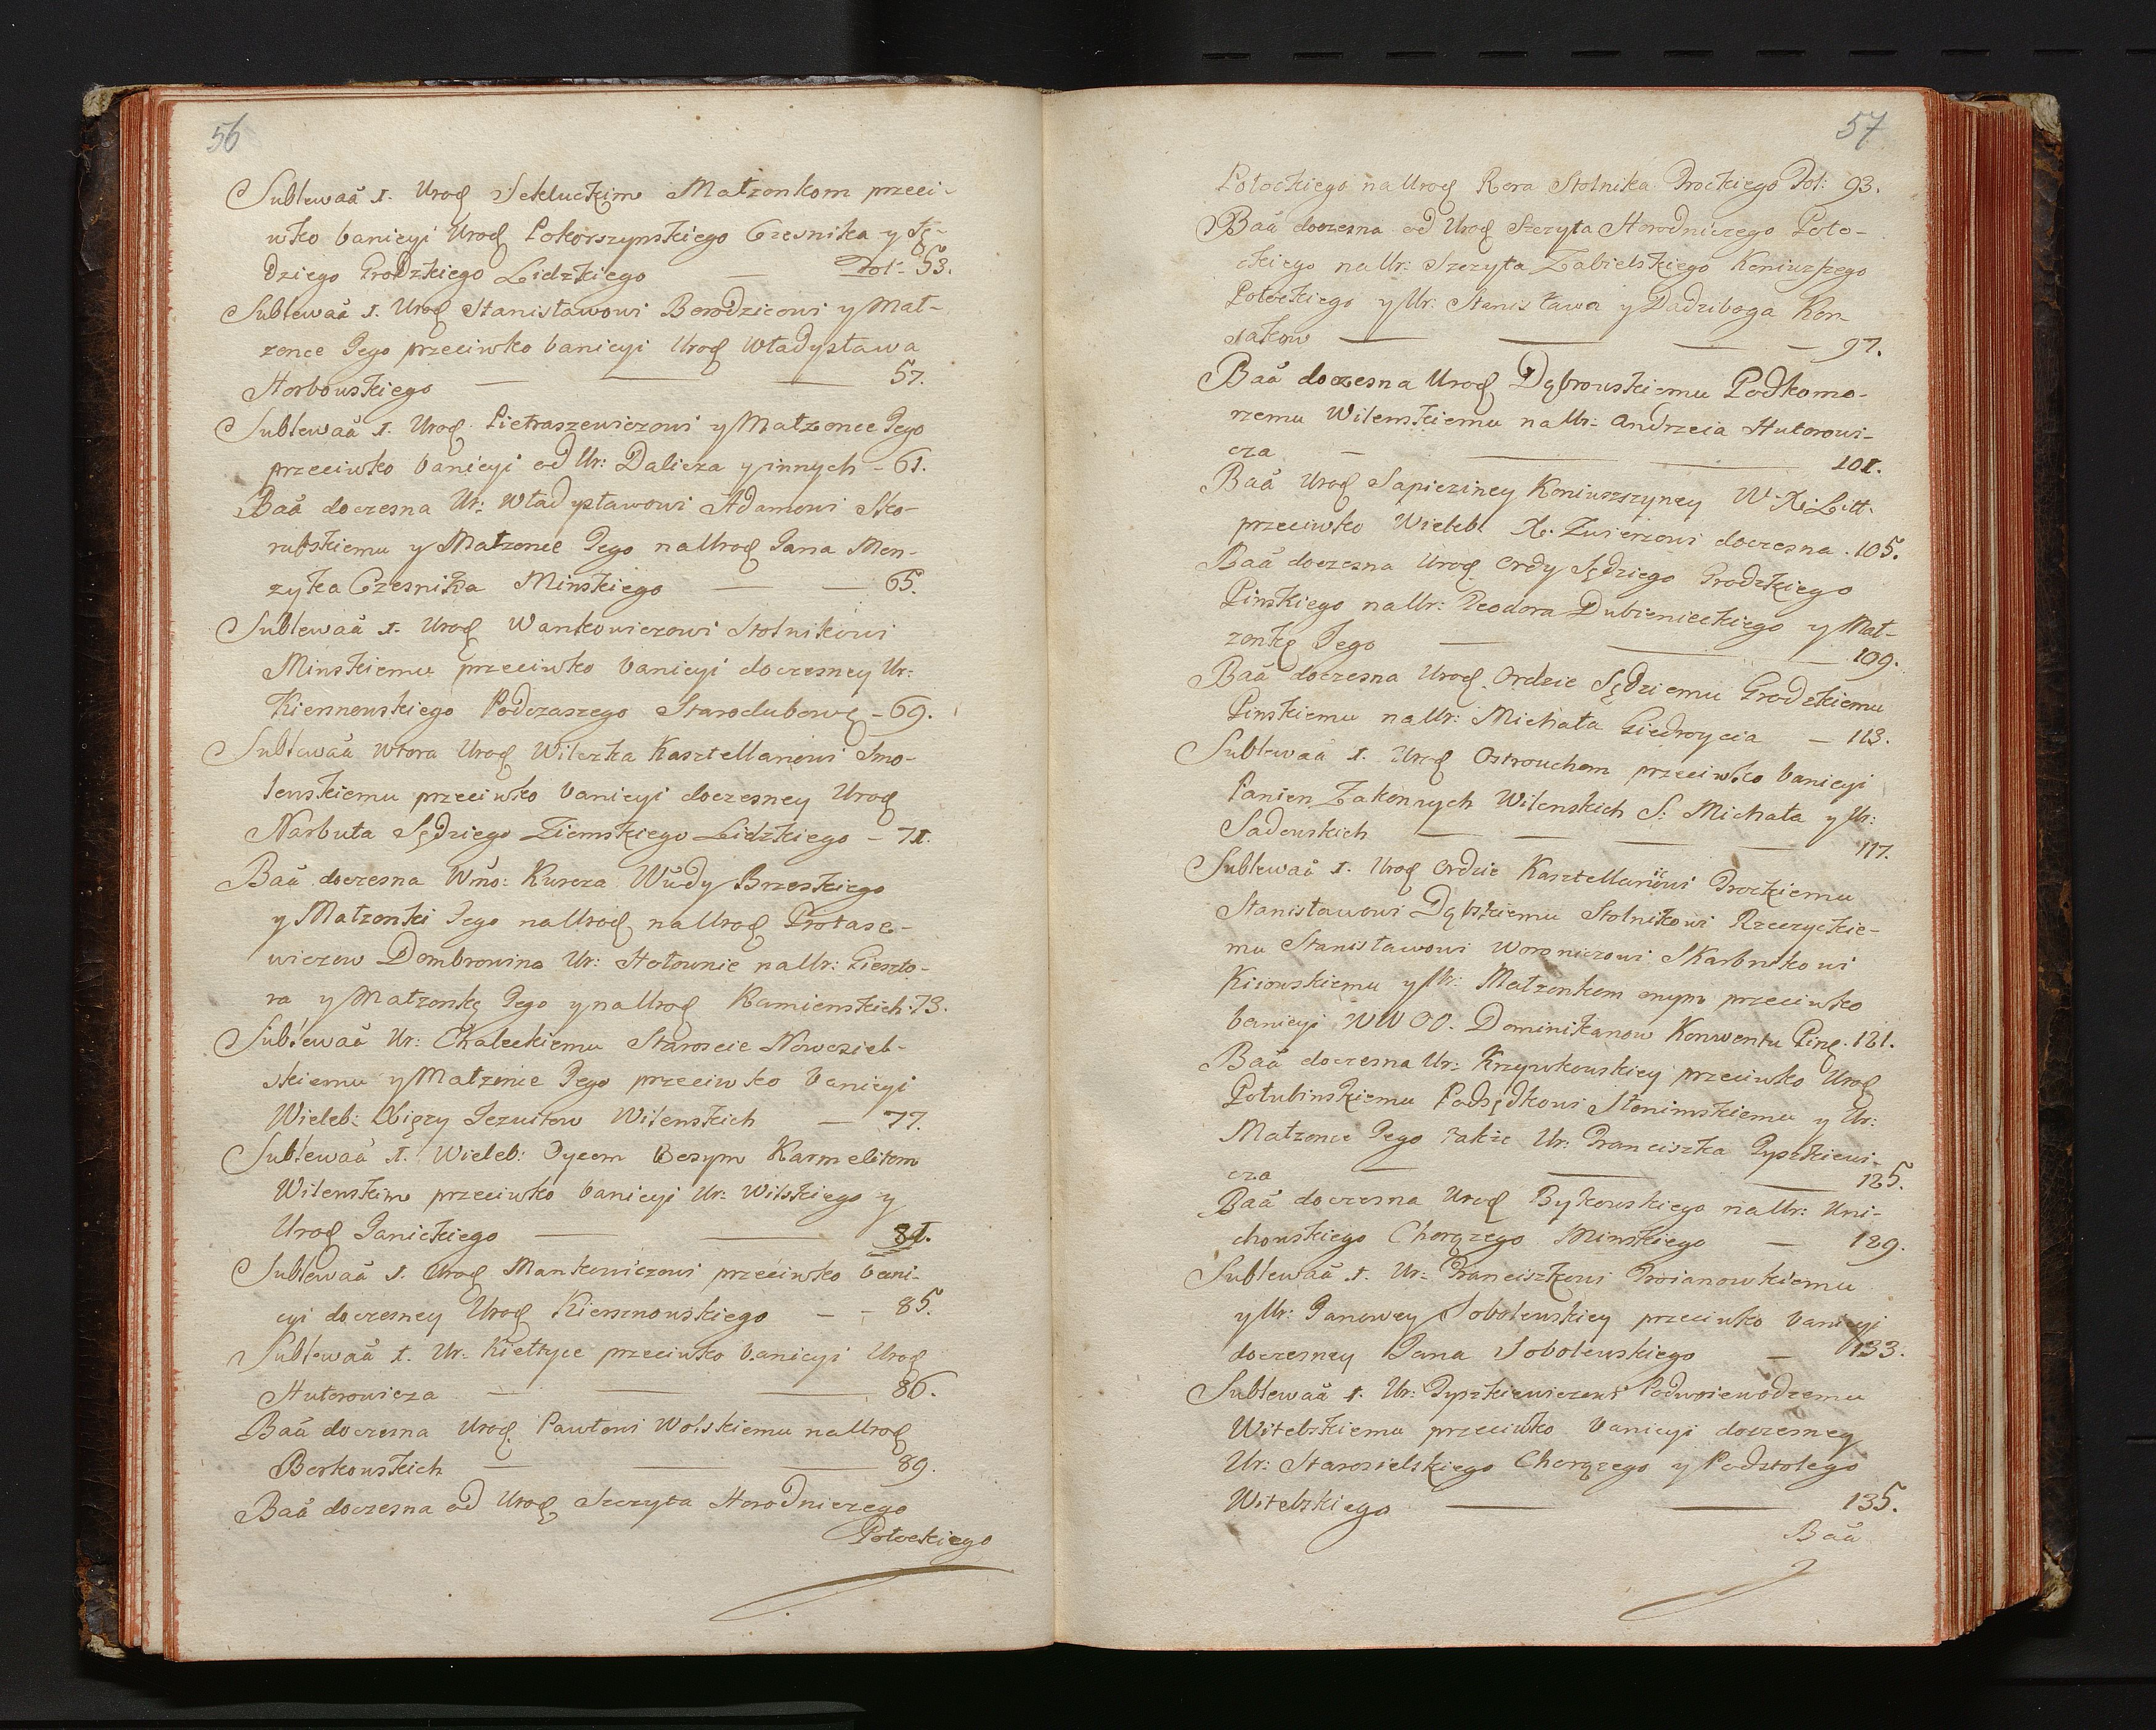 56
Sublewaã 1. Urod Sekluckim Małzonkom przeci-
wko banicyi Urod Pokorszynskiego Czesnika y Sę-
dziego Grodzkiego Lidzkiego — Fol: 53.
Sublewaã 1. Urod Stanisławowi Borodzicowi y Mał-
zonce Jego przeciwko banicyi Urod Władysława
Horbowskiego — — — 57.
Sublewaã 1. Urod Pietraszewiczowi y Małzonce Jego
przeciwko banicyi od Ur: Dalicza y innych - 61.
Baã doczesna Ur: Władysławowi Adamowi Sko-
rubskiemu y Małzonce Jego na Urod Jana Mon-
zyka Czesnika Minskiego — — 65.
Sublewaã 1. Urod Wankowiczowi Stolnikowi
Minskiemu przeciwko banicyi doczesney Ur:
Kiersnowskiego Podczaszego Starodubowę - 69.
Sublewaã wtora Urod Wilczka Kasztellanowi Smo-
lenskiemu przeciwko banicyi doczesney Urod
Narbuta Sędziego Ziemskiego Lidzkiego - 71.
Baã doczesna Wño: Kurcza Wũdy Brzeskiego
y Małzonki Jego na Urod na Urod Protase-
wiczow Dombrowino Ur: Hołownie na Ur: Gieszto-
ra y Małzonkę Jego y na Urod Kamienskich. 73.
Sublewaã Ur: Chaleckiemu Staroscie Nowosiel-
skiemu y Małzonce Jego przeciwko banicyi
Wieleb: Xięzy Jezuitow Wilenskich — 77.
Sublewaã 1. Wieleb: Oycom Bosym Karmelitom
Wilenskim przeciwko banicyi Ur: Wilskiego y
Urod Janickiego — — 81.
Sublewaã 1. Urod Mankowiczowi przeciwko bani-
cyi doczesney Urod Kiersznowskiego — - 85.
Sublewaã 1. Ur: Kiełtyce przeciwko banicyi Urod
Hutorowicza — — — 86.
Baã doczesna Urod Pawłowi Wolskiemu na Urod
Borkowskich — — — 89.
Baã doczesna od Urod Szczyta Horodniczego
Połockiego
57
Połockiego na Urod Rora Stolnika Trockiego Fol: 93.
Baã doczesna od Urod Szczyta Horodniczego Poło-
ckiego na Ur: Szczyta Zabielskiego Koniuszego
Połockiego y Ur: Stanisława y Dadziboga Kor-
sakow — — — — 97.
Baã doczesna Urod Dąbrowskiemu Podkomo-
rzemu Wilenskiemu na Ur: Andrzeia Hutorowi-
cza — — — 101.
Baã Urod Sapieziney Koniuszszyney W. X. Litt.
przeciwko Wieleb. X. Zwierzowi doczesna . 105.
Baã doczesna Urod Ordy Sędziego Grodzkiego
Pinskiego na Ur: Teodora Dubienieckiego y Mał-
zonkę Jego — — — 109.
Baã doczesna Urod Ordzie Sędziemu Grodzkiemu
Pinskiemu na Ur: Michała Giedroycia — 113.
Sublewaã 1. Urod Ostrouchom przeciwko banicyi
Panien Zakonnych Wilenskich S: Michała y Ur:
Sadowskich — — — — 117.
Sublewaã 1. Urod Ordzie Kasztellanowi Trockiemu
Stanisławowi Dąbskiemu Stolnikowi Rzeczyckie-
mu Stanisławowi Woroniczowi Skarbnikowi
Kiiowskiemu y Ur: Małzonkom onym przeciwko
banicyi WWOO. Dominikanow Konwentu Pinę. 121.
Baã doczesna Ur: Krzywkowskiey przeciwko Urod
Połubinskiemu Podsędkowi Słonimskiemu y Ur:
Małzonce Jego także Ur: Franciszka Tyszkiewi-
cza — — — 125.
Baã doczesna Urod Bykowskiego na Ur: Uni-
chowskiego Chorązego Minskiego — 129.
Sublewaã 1. Ur: Franciszkowi Troianowkiemu
y Ur: Janowey Sobolewskiey przeciwko banicyi
doczesney Jana Sobolewskiego — 133.
Sublewaã 1. Ur: Tyszkiewiczowi Podwoiewodzemu
Witebskiemu przeciwko banicyi doczesney
Ur: Starosielskiego Chorązego y Podstolego
Witebskiego — — 135.
Baã